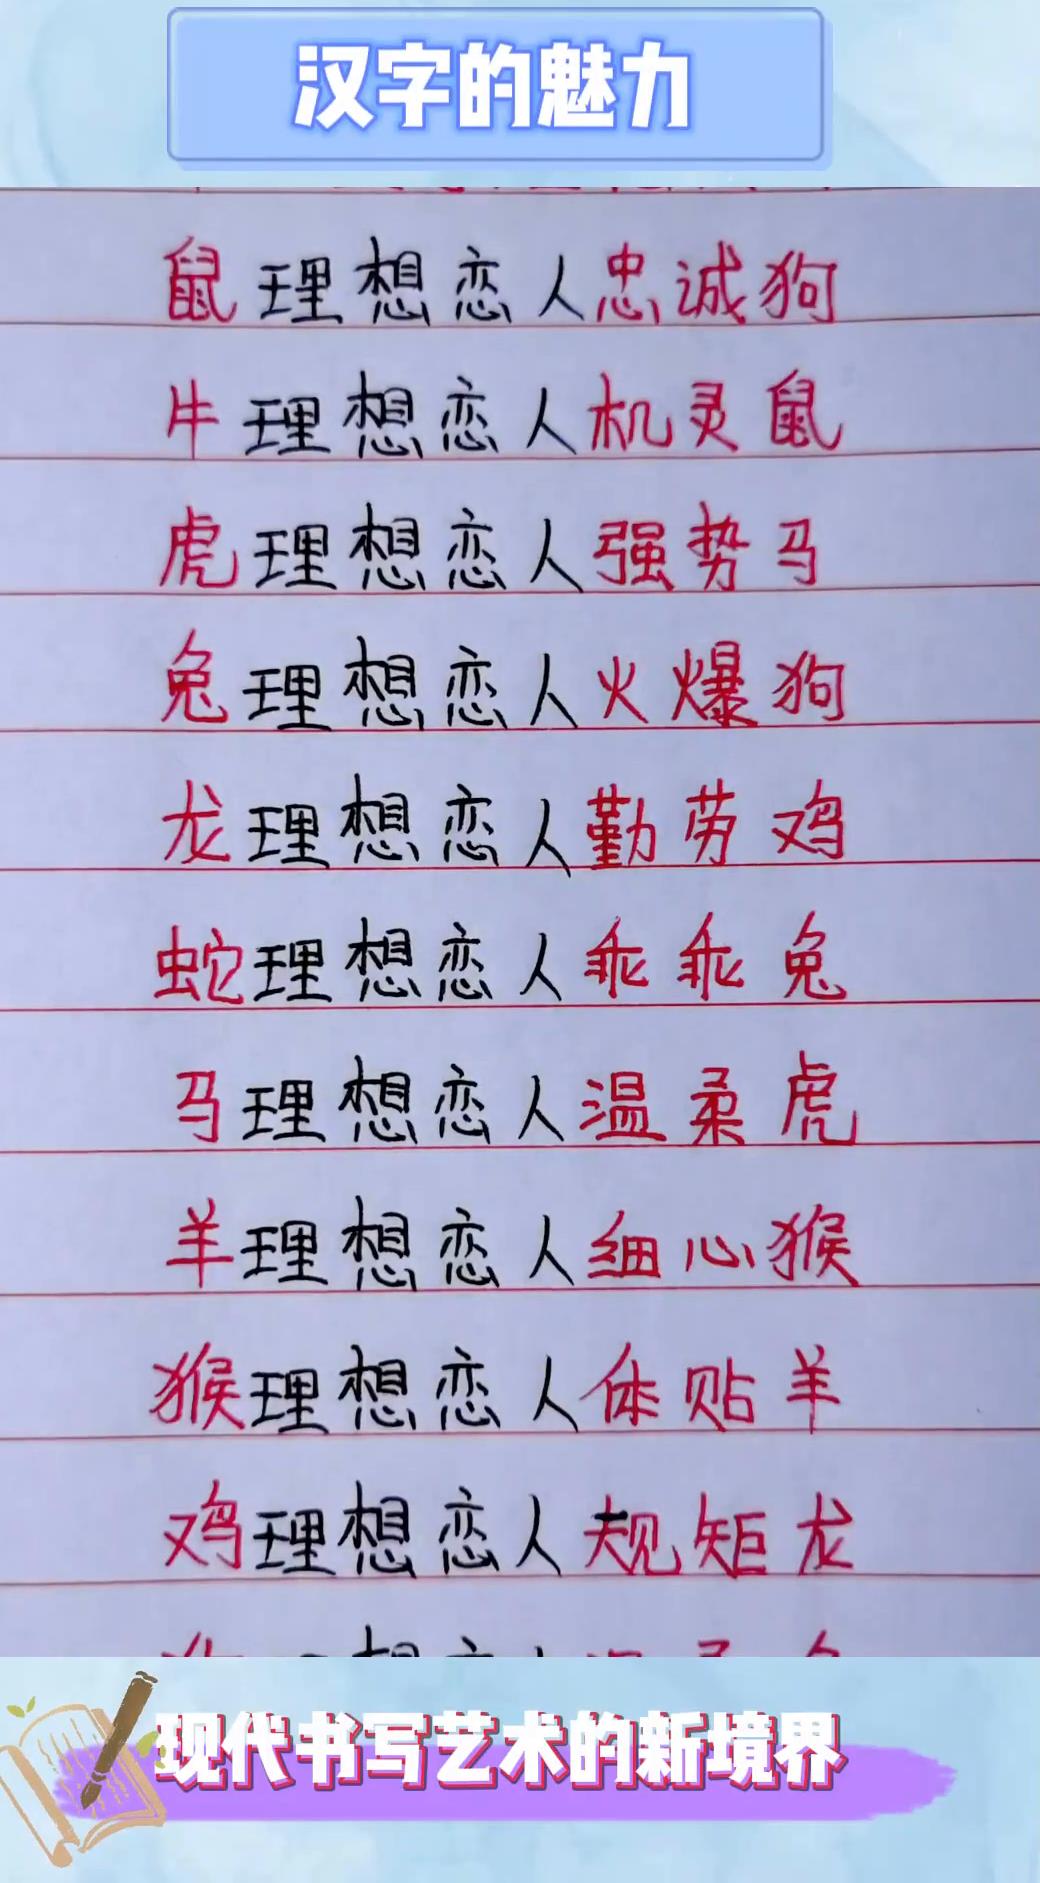 汉字的魅力
鼠理想恋人忠诚狗
牛理想恋人机灵鼠
虎理想恋人强势马
兔理想恋人火爆狗
龙理想恋人勤劳鸡
蛇理想恋人乖乖兔
马理想恋人温柔虎
羊理想恋人细心猴
猴理想恋人体贴羊
鸡理想恋人规矩龙
现代书写艺术的新境界